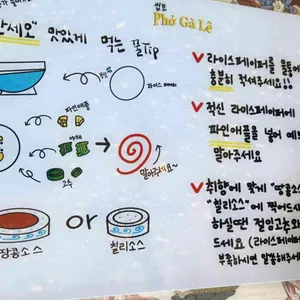 싸세요" 맛있게 먹는 꿀Tip
상호
Phở Gà Lệ
라이스페이퍼
파인애플
야채
고추
말아주세요~
땅콩소스
or
칠리소스
라이스페이퍼를 물에
충분히 적셔주세요!!
적신 라이스페이퍼에
파인애플을 넣어 예쁘
말아주세요
취향에 맞게 "땅콩소스"
"칠리소스"에 찍어드시
하실땐 절임고추와
드세요 (라이스페이퍼
부족하시면 말씀해주세